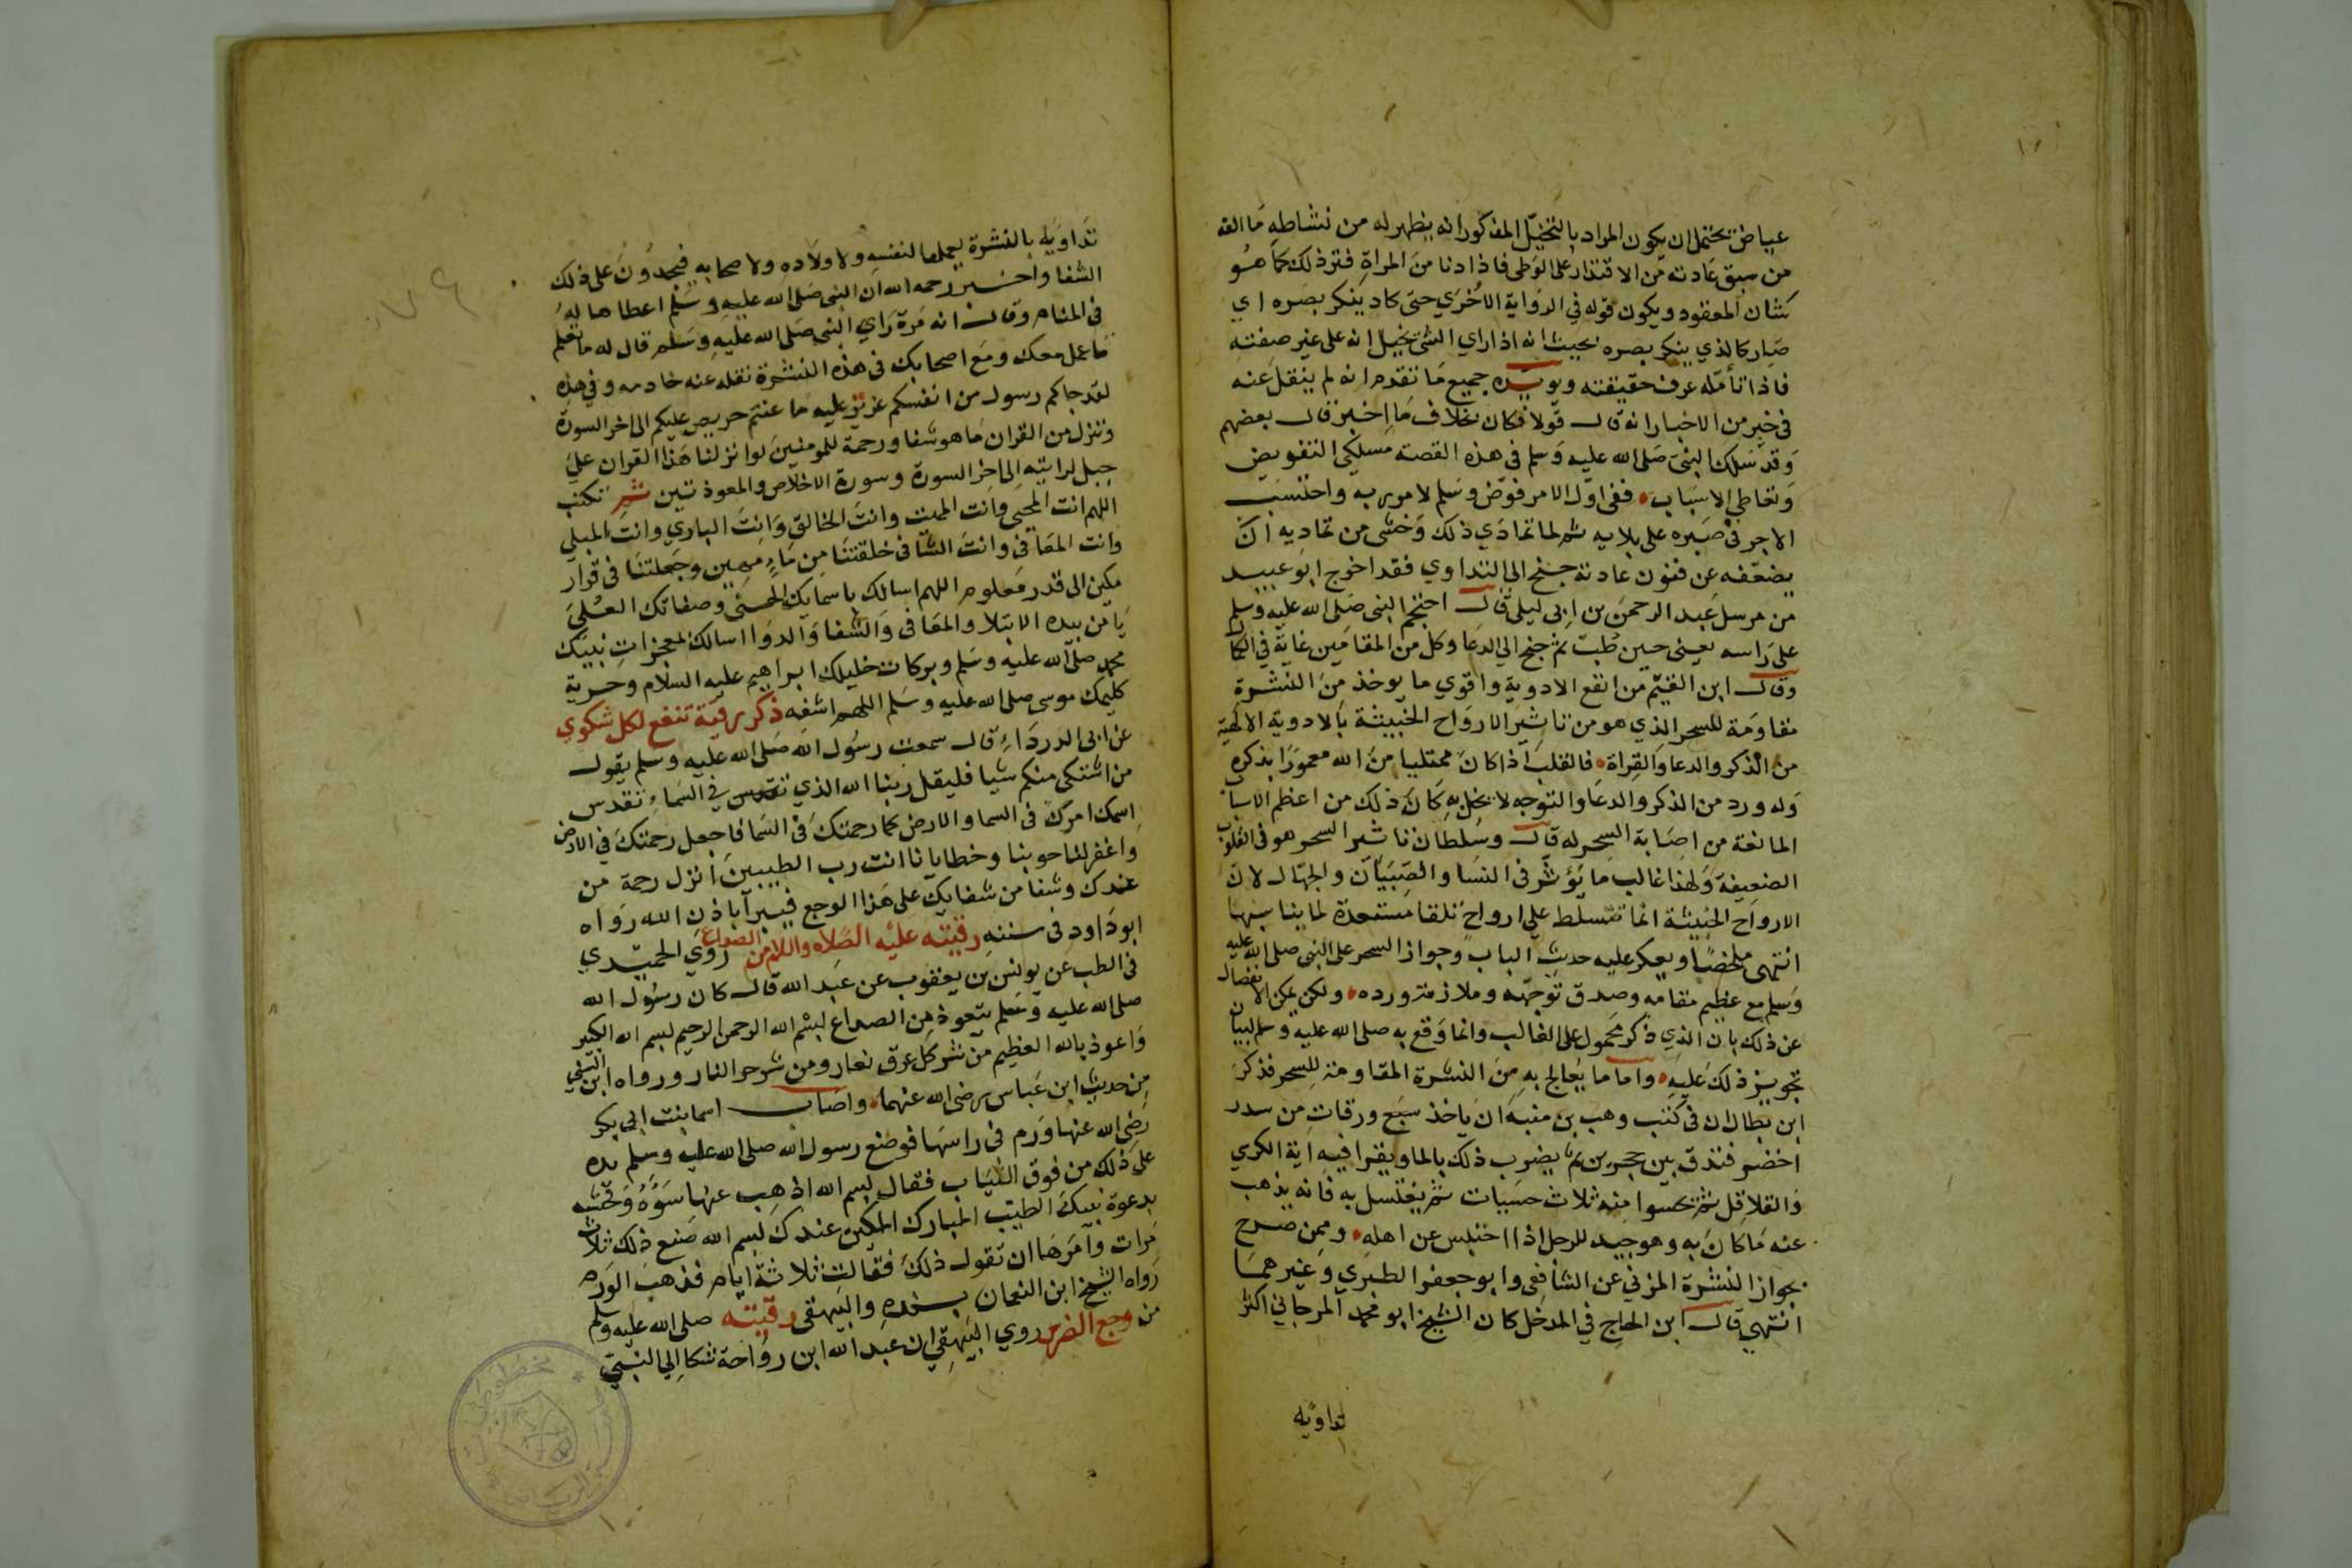 عياض يحتمل ان يكون المراد بالتخيل المذكور انه يظهر له من نشاطه ما الفه
من سبق عادته من الاقتدار على الوطى فاذا دنا من المراة فتر ذلك كما هو
شان المعقود ويكون قوله في الرواية الاخرى حتى كاد ينكر بصره اي
صار كالذي ينكر بصره بحيث انه اذا راي الشي تخيل انه على غير صفته
فاذا تأمله عرف حقيقته ويويده جميع ما تقدم انه لم ينقل عنه
في خبر من الاخبار انه قال قولا فكان بخلاف ما اخبر قال بعضهم
وقد سلك النبي صلى الله عليه وسلم في هذه القصة مسلكي التفويض
وتعاطي الاسباب ففي اول الامر فوض وسلم لامر ربه واحتسب
الاجر في صبره على بلايه ثم لما تمادي ذلك وخشى من تماديه ان
يضعفه عن فنون عادته جنح الى التداوي فقد اخرج ابو عبيد
من مرسل عبد الرحمن بن ابى ليلى قال احتجم النبى صلى الله عليه وسلم
على راسه يعنى حين طب ثم جنح الي الدعا وكل من المقامين غاية في الكمال
وقال ابن القيم من انفع الادوية واقوي ما يوخذ من النشرة
مقاومة للسحر الذي هو من تاثير الارواح الخبيثة بالادوية الالهية
من الذكر والدعا والقراة فالقلب اذا كان ممتليا من الله معمورا بذكره
وله ورد من الذكر والدعا والتوجه لا يخل به كان ذلك من اعظم الاسباب
المانعة من اصابة السحر له قال وسلطان تاثير السحر هو في القلوب
الضعيفة ولهذا غالب ما يؤثر في النسا والصبيان والجهال لان
الارواح الخبيثة انما تتسلط على ارواح تلقا مستعدة لما يناسبها
انتهى ملخصا ويعكر عليه حديث الباب وجواز السحر على النبى صلى الله عليه
وسلم مع عظيم مقامه وصدق توجهه وملازمة ورده ولكن يمكن الانفصال
عن ذلك بان الذي ذكر محمول على الغالب وانما وقع به صلى الله عليه وسلم لبيان
تجويز ذلك عليه واما ما يعالج به من النشرة المقاومة للسحر فذكر
ابن بطال ان في كتب وهب بن منبه ان ياخذ سبع ورقات من سدر
اخضر فتدق بين حجرين ثم يضرب ذلك بالما ويقرا فيه اية الكرسي
والقلاقل ثم يحسوا منه ثلاث حسيات ثم يغتسل به فانه يذهب
عنه ما كان به وهو جيد للرجل اذا احتبس عن اهله وممن صرح
بجواز النشرة المزني عن الشافعى وابو جعفر الطبري وغيرهما
انتهي قال ابن الحاج في المدخل كان الشيخ ابو محمد المرجاني اكثر
تداويه
تداويه بالنشرة يعملها لنفسه ولاولاده ولاصحابه فيجدون على ذلك
الشفا واخبر رحمه الله ان النبى صلى الله عليه وسلم اعطاها له
في المنام وقال انه مرة راي النبى صلى الله عليه وسلم قال له ما تعلم
ما عمل معك ومع اصحابك في هذه النشرة نقله عنه خادمه وفي هذه
لقد جاكم رسول من انفسكم عزيز عليه ما عنتم حريص عليكم الى اخر السورة
وننزل من القران ما هو شفا ورحمة للمومنين لو انزلنا هذا القران على
جبل لرايته الى اخر السورة وسورة الاخلاص والمعوذتين ثم تكتب
اللهم انت المحيى وانت المميت وانت الخالق وانت الباري وانت المبلي
وانت المعافى وانت الشافى خلقتنا من ماء مهين وجعلتنا في قرار
مكين الى قدر معلوم اللهم اسالك باسمايك الحسنى وصفاتك العلى
يا من بيده الابتلا والمعافى والشفا والدوا اسالك بمعجزات نبيك
محمد صلى الله عليه وسلم وبركات خليلك ابراهيم عليه السلام وحرمة
كليمك موسى صلى الله عليه وسلم اللهم اشفه ذكر رقية تنفع لكل شكوي
عن ابى الدرداء قال سمعت رسول الله صلى الله عليه وسلم يقول
من اشتكى منكم شيا فليقل ربنا الله الذي تقدس في السماء تقدس
اسمك امرك في السما والارض كما رحمتك في السما فاجعل رحمتك في الارض
واغفر لنا حوبنا وخطايانا انت رب الطيبين انزل رحمة من
عندك وشفا من شفايك على هذا الوجع فيبرا باذن الله رواه
ابو داود في سننه رقيته عليه الصلاه والسلام من الصداع روي الحميدي
في الطب عن يونس بن يعقوب عن عبد الله قال كان رسول الله
صلى الله عليه وسلم يتعوذ من الصداع بسم الله الرحمن الرحيم بسم الله الكبير
واعوذ بالله العظيم من شر كل عرق نعار ومن شر حر النار ورواه ابن السني
من حديث ابن عباس رضى الله عنهما واصاب اسما بنت ابى بكر
رضى الله عنها ورم في راسها فوضع رسول الله صلى الله عليه وسلم يده
على ذلك من فوق الثياب فقال بسم الله اذهب عنها سوءه وفحشه
بدعوة نبيك الطيب المبارك المكين عندك بسم الله صنع ذلك ثلاث
مرات وامرها ان تقول ذلك فقالت ثلاثة ايام فذهب الورم
رواه الشيخ ابن النعمان بسنده والبيهقى رقيته صلى الله عليه وسلم
من وجع الضرس روي البيهقي ان عبد الله ابن رواحة شكا الي النبي